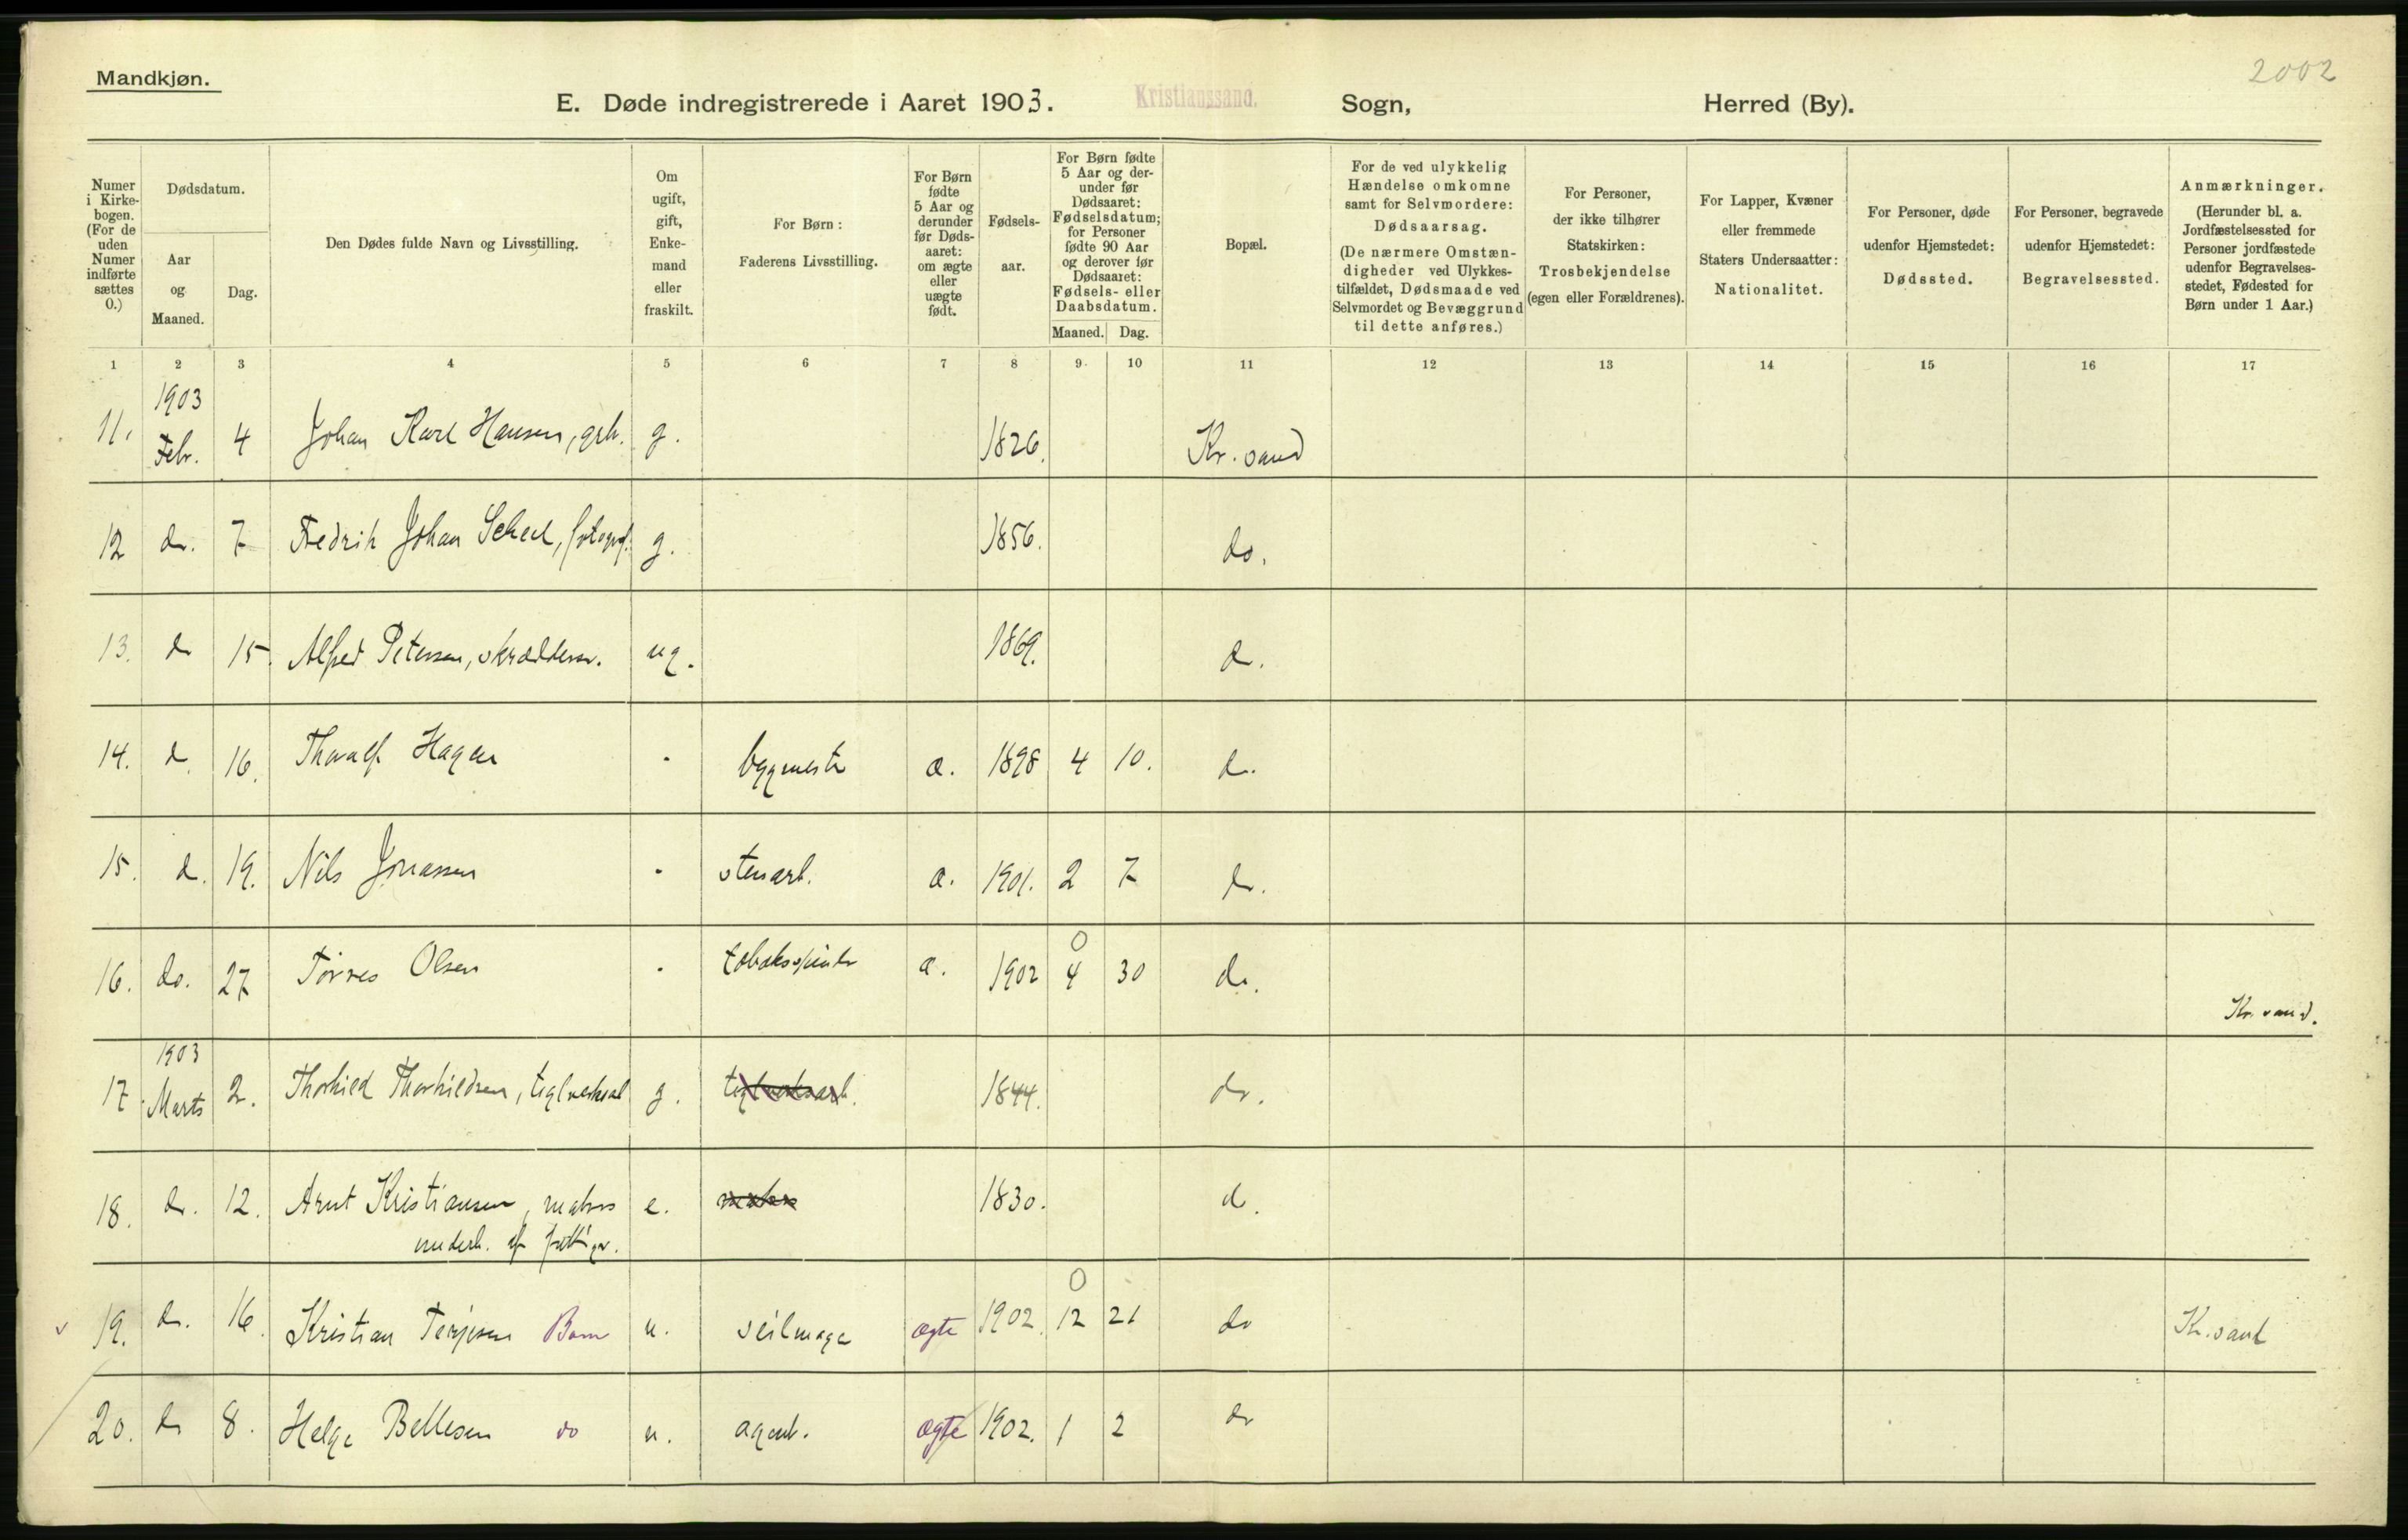 Mandkjøn.
2002
E. Døde indregistrerede i Aaret 1903. Kristianssand. Sogn, Herred (By).
Numer i Kirke-bogen. (For de uden Numer indførte sættes 0.)
Dødsdatum.
Aar og Maaned.
Dag.
Den Dødes fulde Navn og Livsstilling.
Om ugift, gift, Enke-mand eller fraskilt.
For Børn: Faderens Livsstilling.
For Børn fødte 5 Aar og derunder før Døds-aaret: om ægte eller uægte født.
Fødsels-aar.
For Børn fødte 5 Aar og der-under før Dødsaaret: Fødselsdatum; for Personer fødte 90 Aar og derover før Dødsaaret: Fødsels- eller Daabsdatum.
Maaned. Dag.
Bopæl.
For de ved ulykkelig Hændelse omkomne samt for Selvmordere: Dødsaarsag. (De nærmere Omstæn-digheder ved Ulykkes-tilfældet, Dødsmaade ved Selvmordet og Bevæggrund til dette anføres.)
For Personer, der ikke tilhører Statskirken: Trosbekjendelse (egen eller Forældrenes).
For Lapper, Kvæner eller fremmede Staters Undersaatter: Nationalitet.
For Personer, døde udenfor Hjemstedet: Dødssted.
For Personer, begravede udenfor Hjemstedet: Begravelsessted.
Anmærkninger. (Herunder bl. a. Jordfæstelsessted for Personer jordfæstede udenfor Begravelses-stedet, Fødested for Børn under 1 Aar.)
1 2 3 4 5 6 7 8 9. 10 11 12 13 14 15 16 17
1903
11. Febr. 4 Johan Karl Hansen, grh. g. 1826. Kr.sand
12 do. 7 Fredrik Johan Scheel, fotograf. g. 1856. do.
13. do 15. Alfred Petersen, skræddersv. ug. 1869. do.
14. do. 16. Thoralf Hagen - bygmester æ. 1898 4 10. do.
15. do. 19. Nils Jonassen - stenarb. æ. 1901. 2 7 do.
0
16. do. 27 Tørres Olsen - tobaksspinder æ. 1902 4 30 do. Kr.sand.
1903
17 Marts 2. Thorkild Thorkildsen, teglverksarb g. teglverksarb. 1844. do.
18. do. 12. Arnt Kristiansen, matros e. matros 1830. do.
underh. af fattigv.
0
19. do. 16. Kristian Terjesen Barn u. seilmager ægte 1902. 12 21 do Kr.sand
20. do 8. Helge Bellesen do u. agent. ægte 1902. 1 2 do